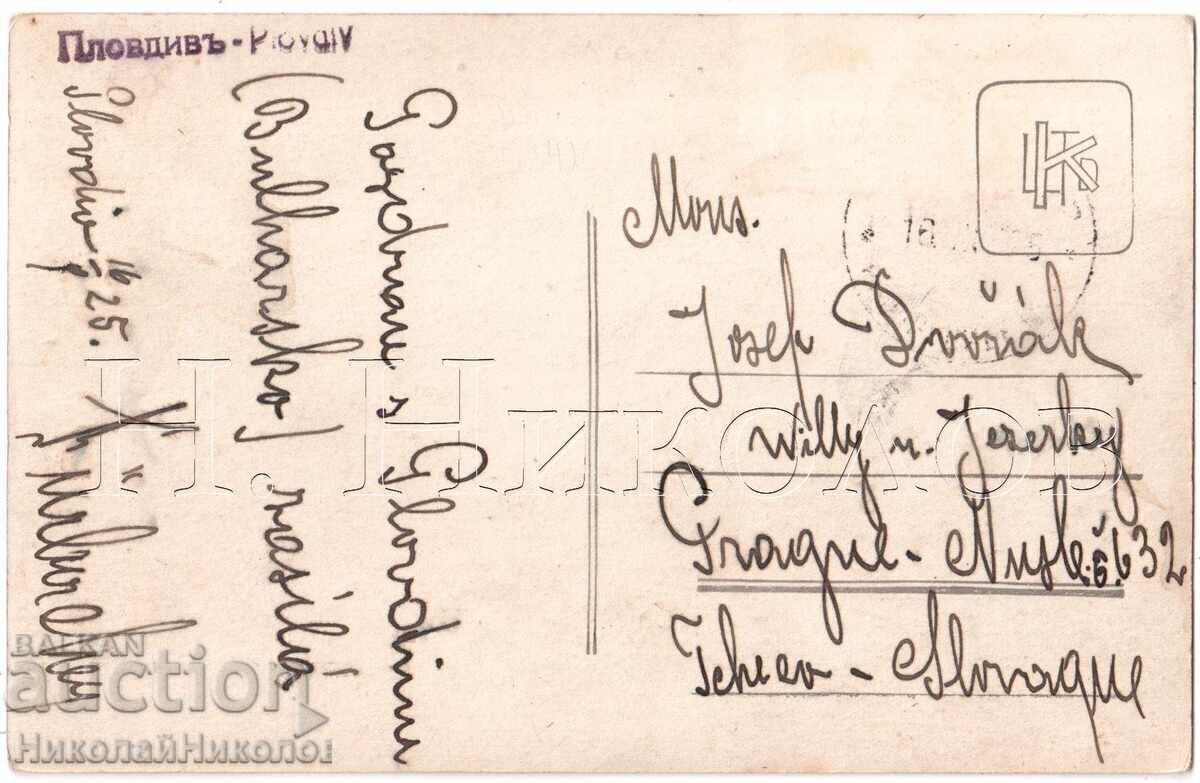 Пловдивъ - Plovdiv
Pozdrav z Plovdivu
(Bulharsko) zasílá
Plovdiv 16/9 25.
Mons.
Josef Dvořák
Willy u. Jezerky
Prague - Nusle č. 632
Tchéco - Slovaque
Н. Николов
BALKAN
auction
НиколайНиколов